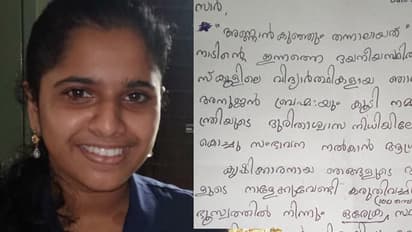 സർ,
"അണ്ണാൻകുഞ്ഞും തന്നാലായത്"
നാടിന്റെ ഇന്നത്തെ ദയനീയസ്ഥിതി
സ്കൂളിലെ വിദ്യാർത്ഥികളായ ഞാ
അനുജൻ ബ്രഹ്മയും കൂടി
ന്ത്രിയുടെ ദുരിതാശ്വാസ നിധിയിലേ
കൊച്ചു സംഭാവന നൽകാൻ ആഗ്ര
കൃഷിക്കാരനായ ഞങ്ങളുടെ
ളുടെ നാളേക്കുവേണ്ടി കരുതിവച്ചി
ഭൂസ്വത്തിൽ നിന്നും ഒരേക്ര സ്ഥ